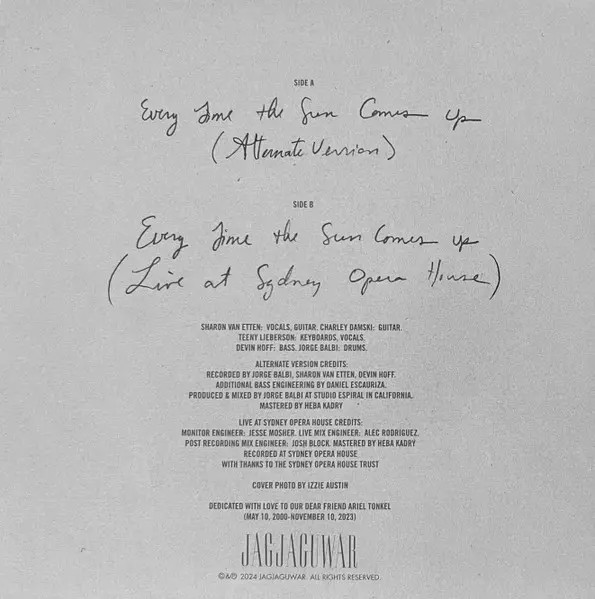 SIDE A
Every Time the Sun Comes up
(Alternate Version)
SIDE B
Every Time the Sun Comes up
(Live at Sydney Opera House)
SHARON VAN ETTEN: VOCALS, GUITAR. CHARLEY DAMSKI: GUITAR.
TEENY LIEBERSON: KEYBOARDS, VOCALS.
DEVIN HOFF: BASS. JORGE BALBI: DRUMS.
ALTERNATE VERSION CREDITS:
RECORDED BY JORGE BALBI, SHARON VAN ETTEN, DEVIN HOFF.
ADDITIONAL BASS ENGINEERING BY DANIEL ESCAURIZA.
PRODUCED & MIXED BY JORGE BALBI AT STUDIO ESPIRAL IN CALIFORNIA.
MASTERED BY HEBA KADRY
LIVE AT SYDNEY OPERA HOUSE CREDITS:
MONITOR ENGINEER: JESSE MOSHER. LIVE MIX ENGINEER: ALEC RODRIGUEZ.
POST RECORDING MIX ENGINEER: JOSH BLOCK. MASTERED BY HEBA KADRY
RECORDED AT SYDNEY OPERA HOUSE
WITH THANKS TO THE SYDNEY OPERA HOUSE TRUST
COVER PHOTO BY IZZIE AUSTIN
DEDICATED WITH LOVE TO OUR DEAR FRIEND ARIEL TONKEL
(MAY 10, 2000-NOVEMBER 10, 2023)
JAGJAGUWAR
©&℗ 2024 JAGJAGUWAR. ALL RIGHTS RESERVED.